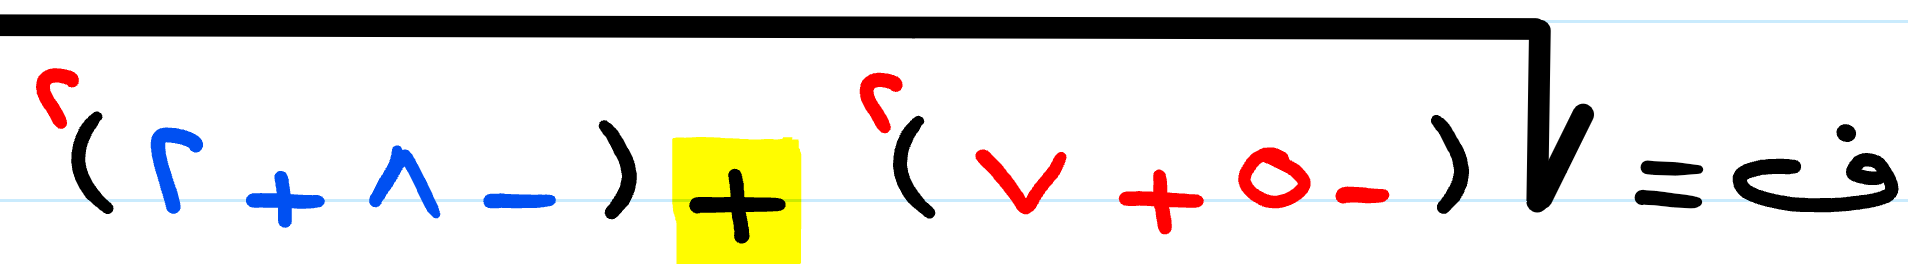 ف = √(-٥ + ٧)٢ + (-٨ + ٢)٢